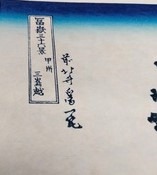 冨嶽三十六景 甲州
三嶌越
前北斎為一筆